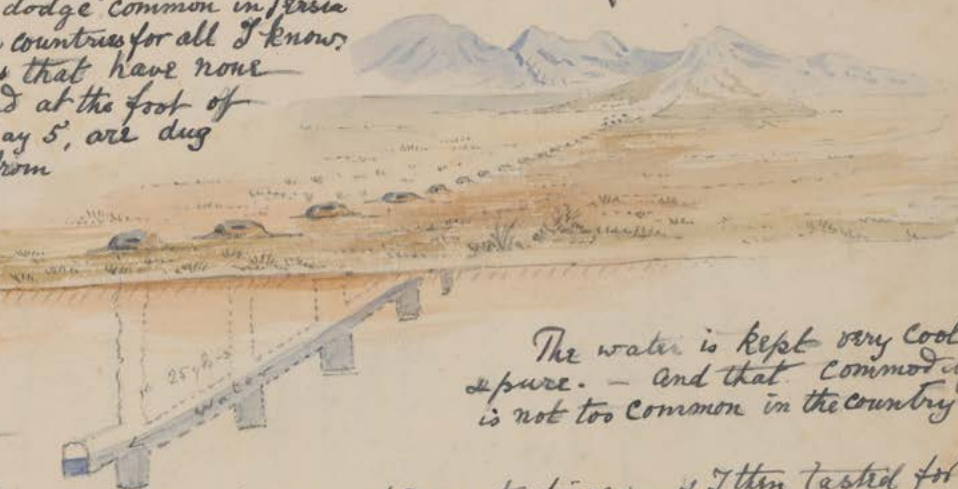 dodge common in Persia
countries for all I know.
that have none
at the foot of
5, are dug
from
25 yds
The water is kept very cool
& pure. – And that commodi
is not too common in the country
I then tasted for